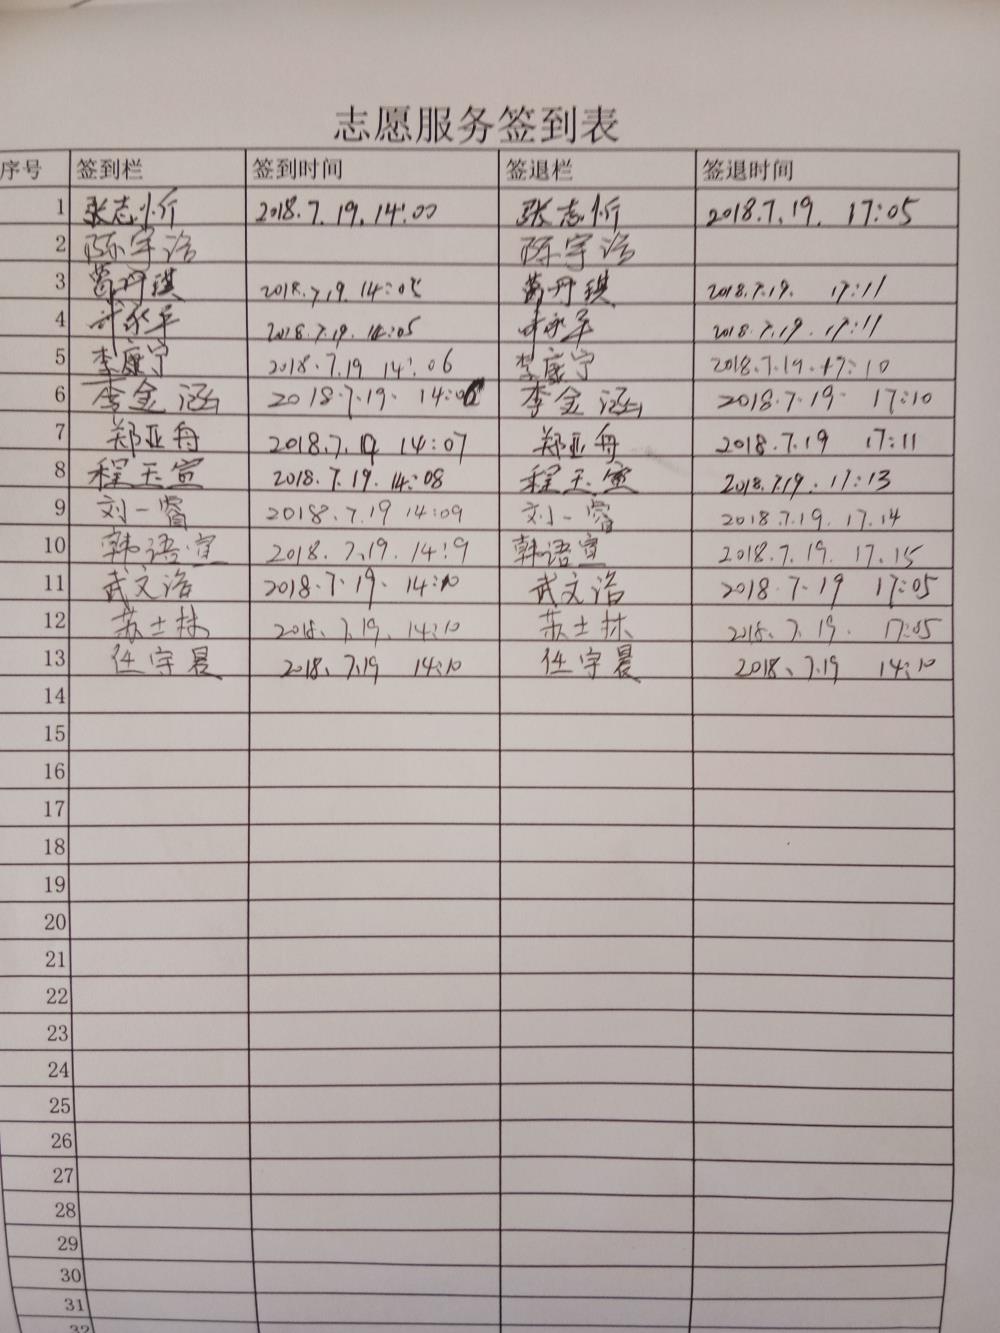 志愿服务签到表
序号 签到栏 签到时间 签退栏 签退时间
1 张志忻 2018.7.19.14:00 张志忻 2018.7.19. 17:05
2 陈宇浩 陈宇浩
3 葛丹琪 2018.7.19.14:05 葛丹琪 2018.7.19. 17:11
4 永平 2018.7.19.14:05 永平 2018.7.19.17:11
5 李康宁 2018.7.19 14:06 李康宁 2018.7.19.17:10
6 李金涵 2018.7.19. 14:06 李金涵 2018.7.19. 17:10
7 郑亚舟 2018.7.19 14:07 郑亚舟 2018.7.19 17:11
8 程玉宣 2018.7.19.14:08 程玉宣 2018.7.19.17:13
9 刘一睿 2018.7.19 14:09 刘一睿 2018.7.19.17.14
10 韩语宣 2018.7.19.14:9 韩语宣 2018.7.19.17.15
11 武文浩 2018.7.19.14:10 武文浩 2018.7.19 17:05
12 苏士林 2018.7.19.14:10 苏士林 2018.7.19. 17:05
13 任宇晨 2018、7.19 14:10 任宇晨 2018、7.19 14:10
14
15
16
17
18
19
20
21
22
23
24
25
26
27
28
29
30
31
32